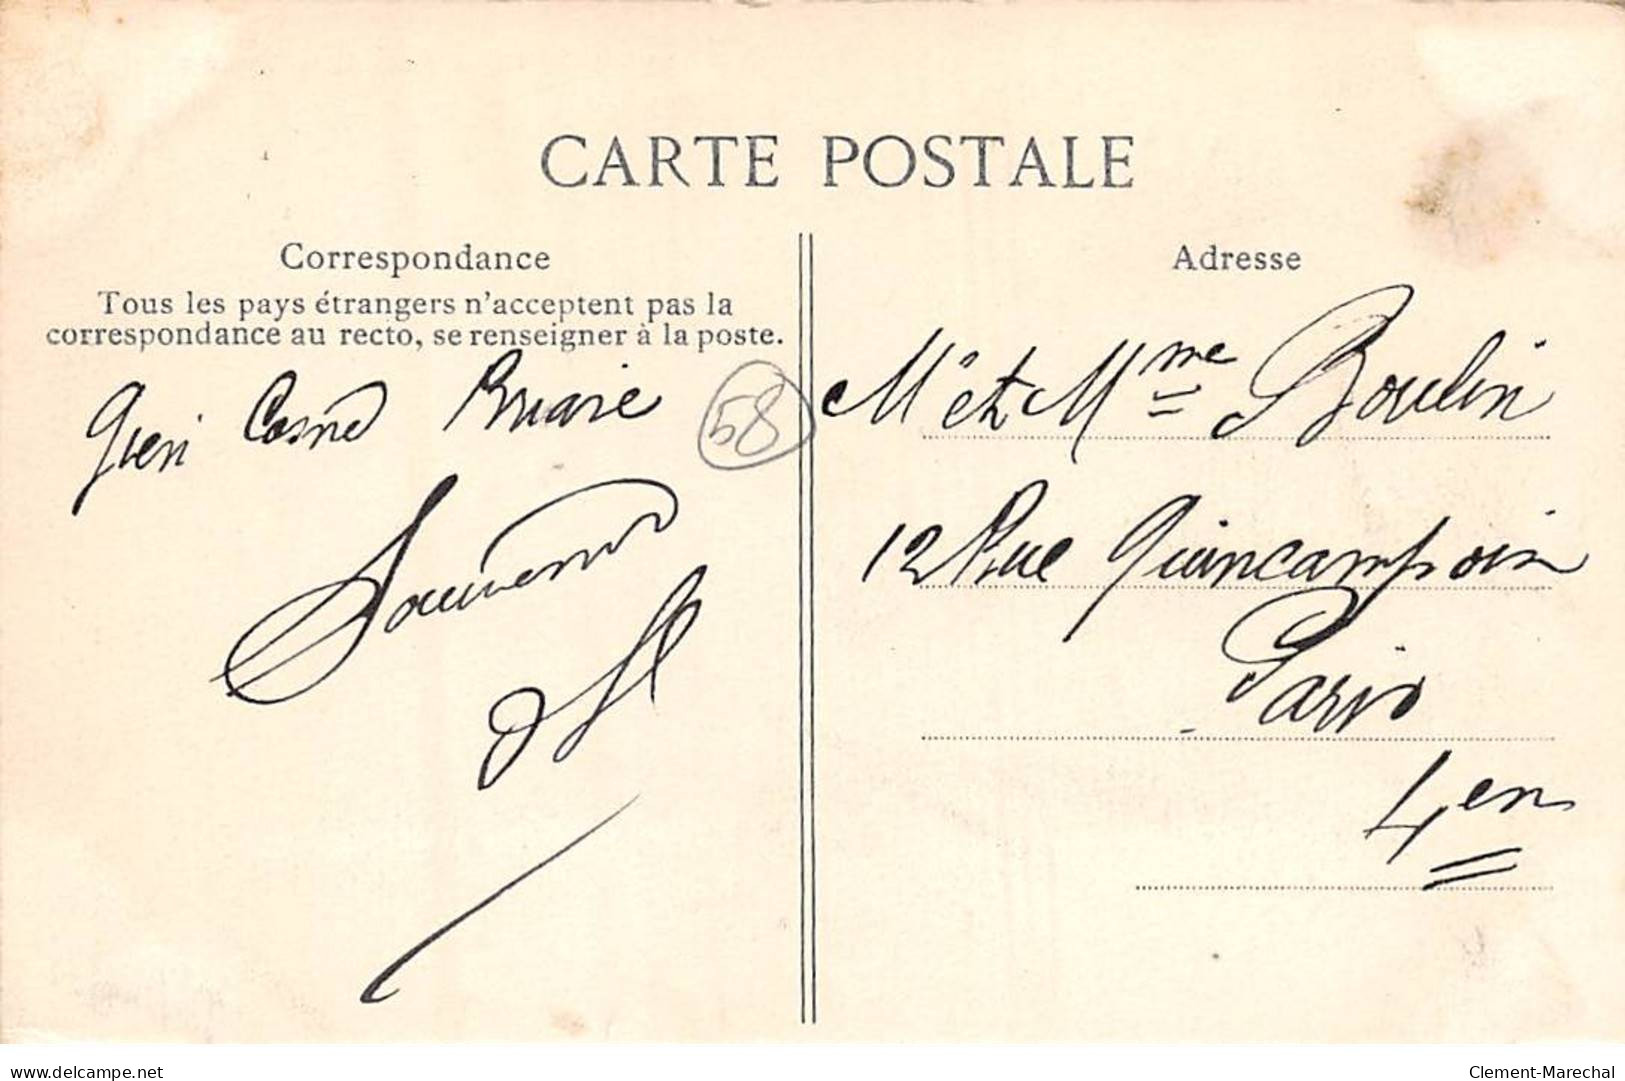 CARTE POSTALE
Correspondance
Tous les pays étrangers n'acceptent pas la
correspondance au recto, se renseigner à la poste.
Gien Cosne Briare
58
Souvenir
Adresse
Mr et Mme Boulin
12 Rue Quincampoix
Paris
4en
www.delcampe.net
Clement-Marechal